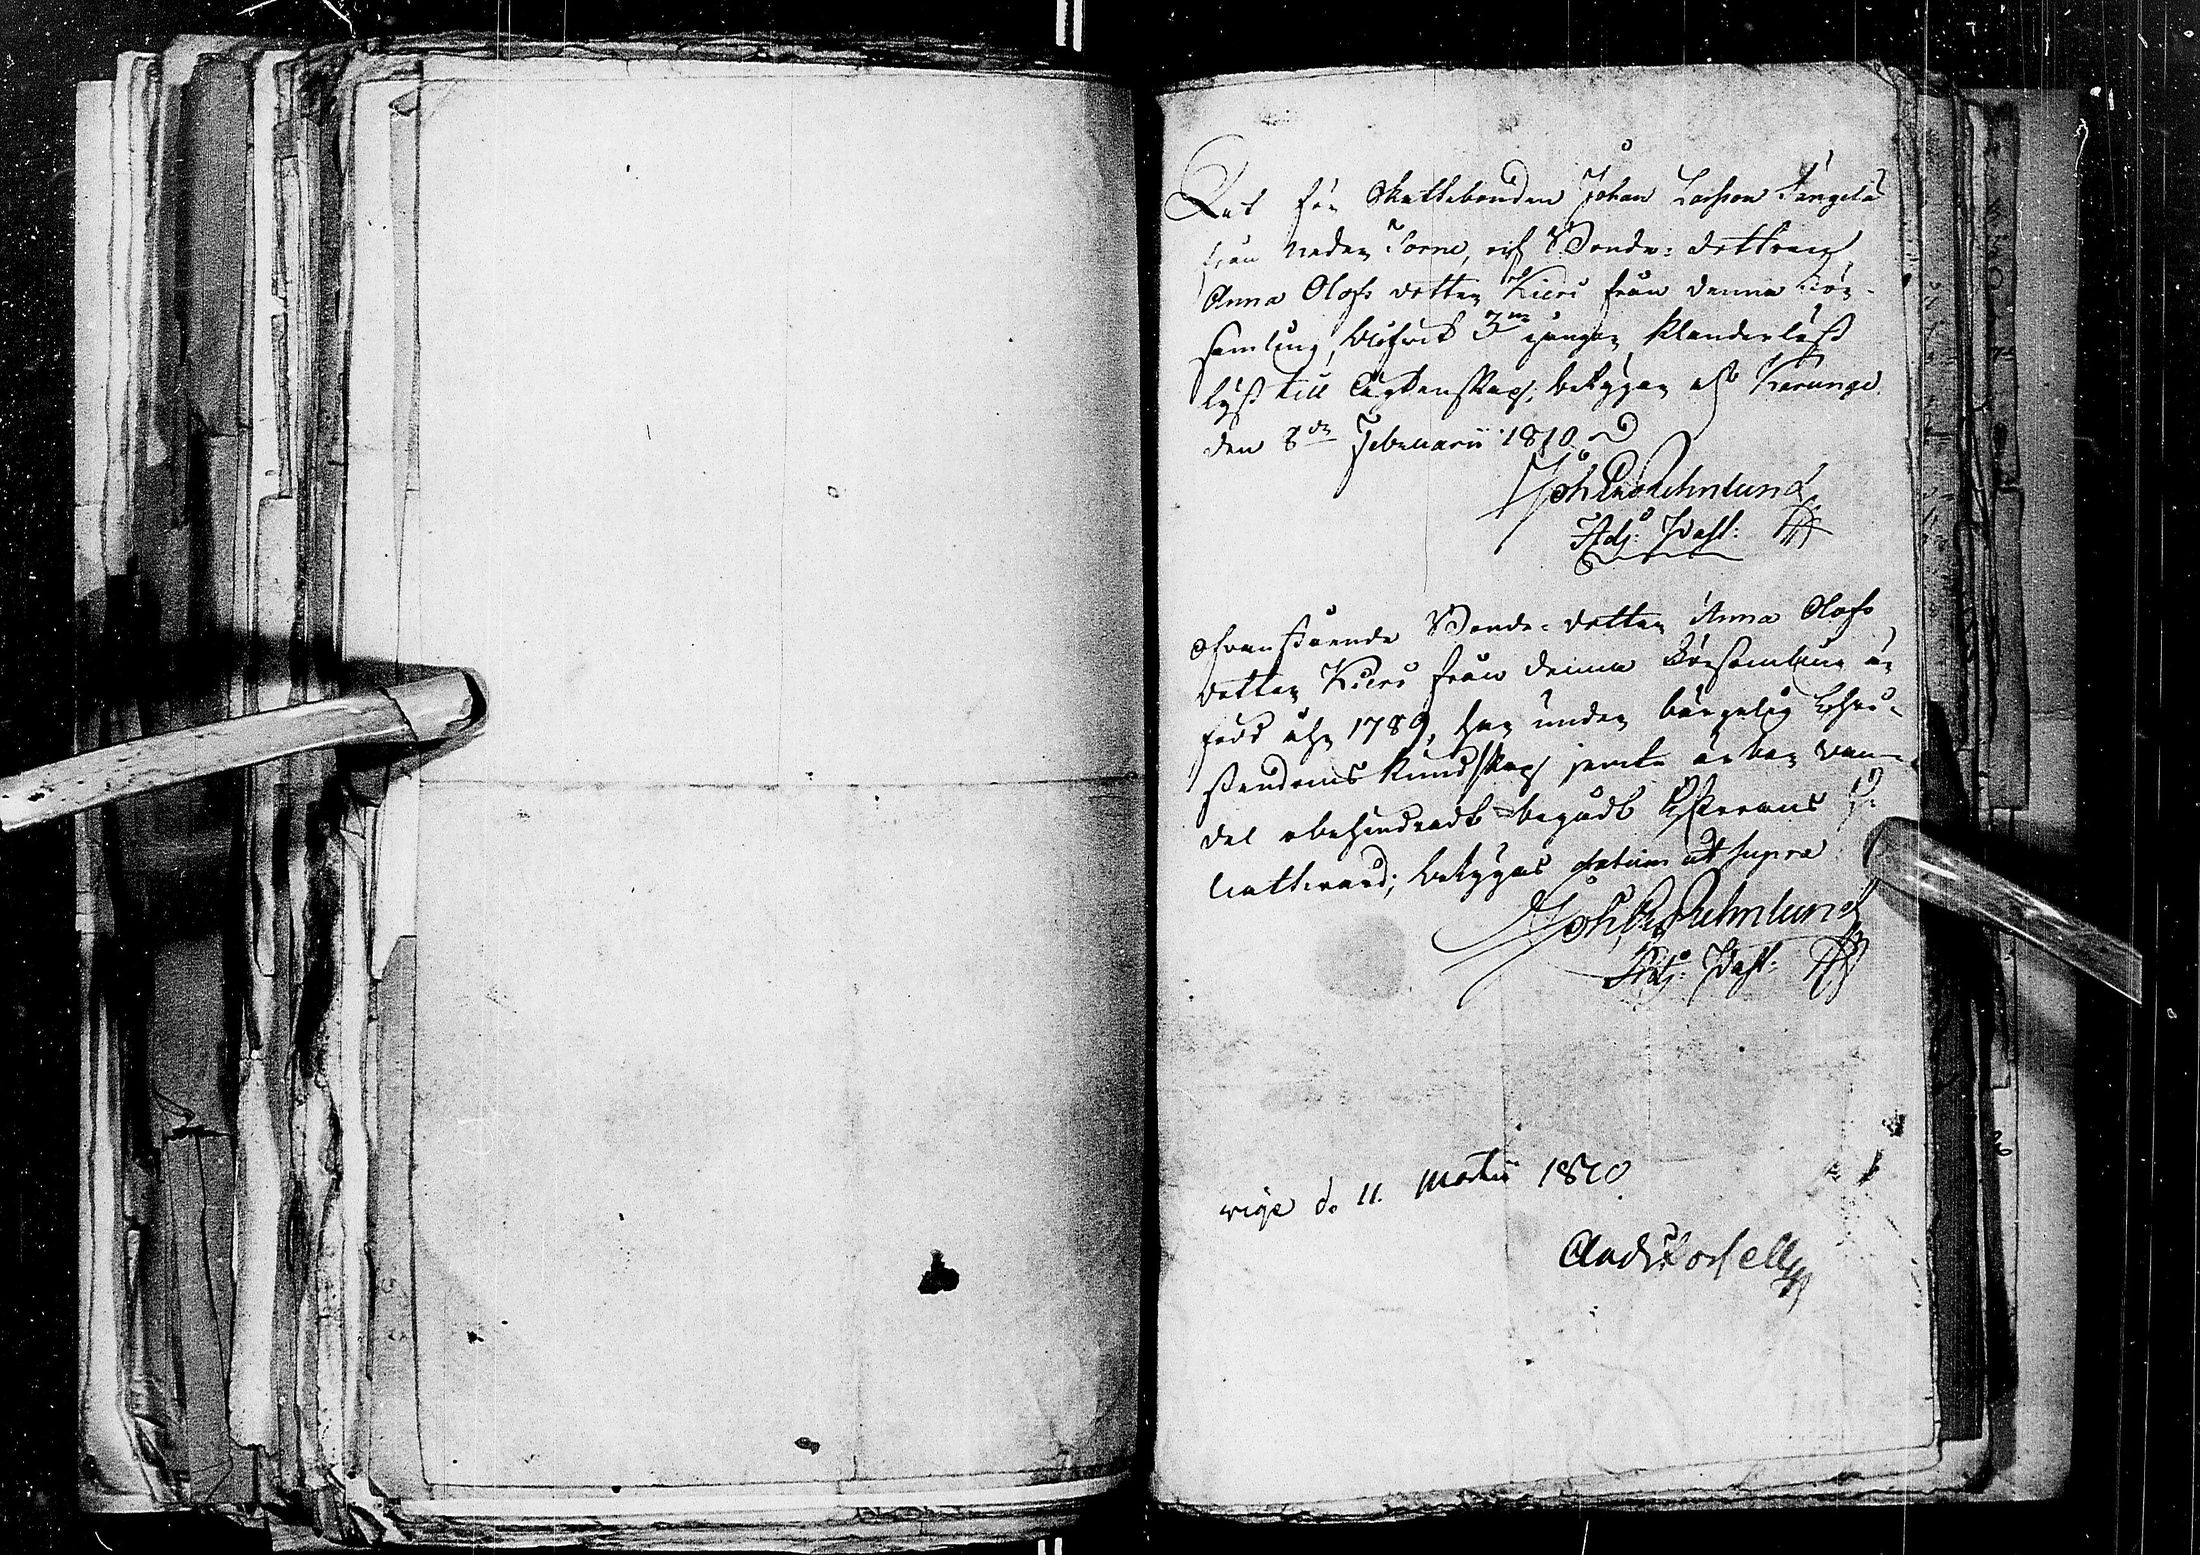 Det för Skattebonden Johan Larsson Kangela
från Neder Torne, och Bonde-dottren
Anna Olofs dotter Kieri från denna För-
samling, blifvit 3ne gångor klanderlöst
lyst till Ägtenskap, betygar af Karunge
den 8de Februarii 1810.
Joh Rechnlund
Adj: Past:
Ofvanstående Bonde-dotter Anna Olofs
dotter Kieri från denna Församling är
född åhr 1789, har under bärgelig Chris-
stendoms kundskap jemte ärbar van-
del obehindradt begådt HErrans
Nattvard; betygas datum ut supra
Joh Rechnlund
Adj: Past:
vige d. 11. Martii 1810
And: